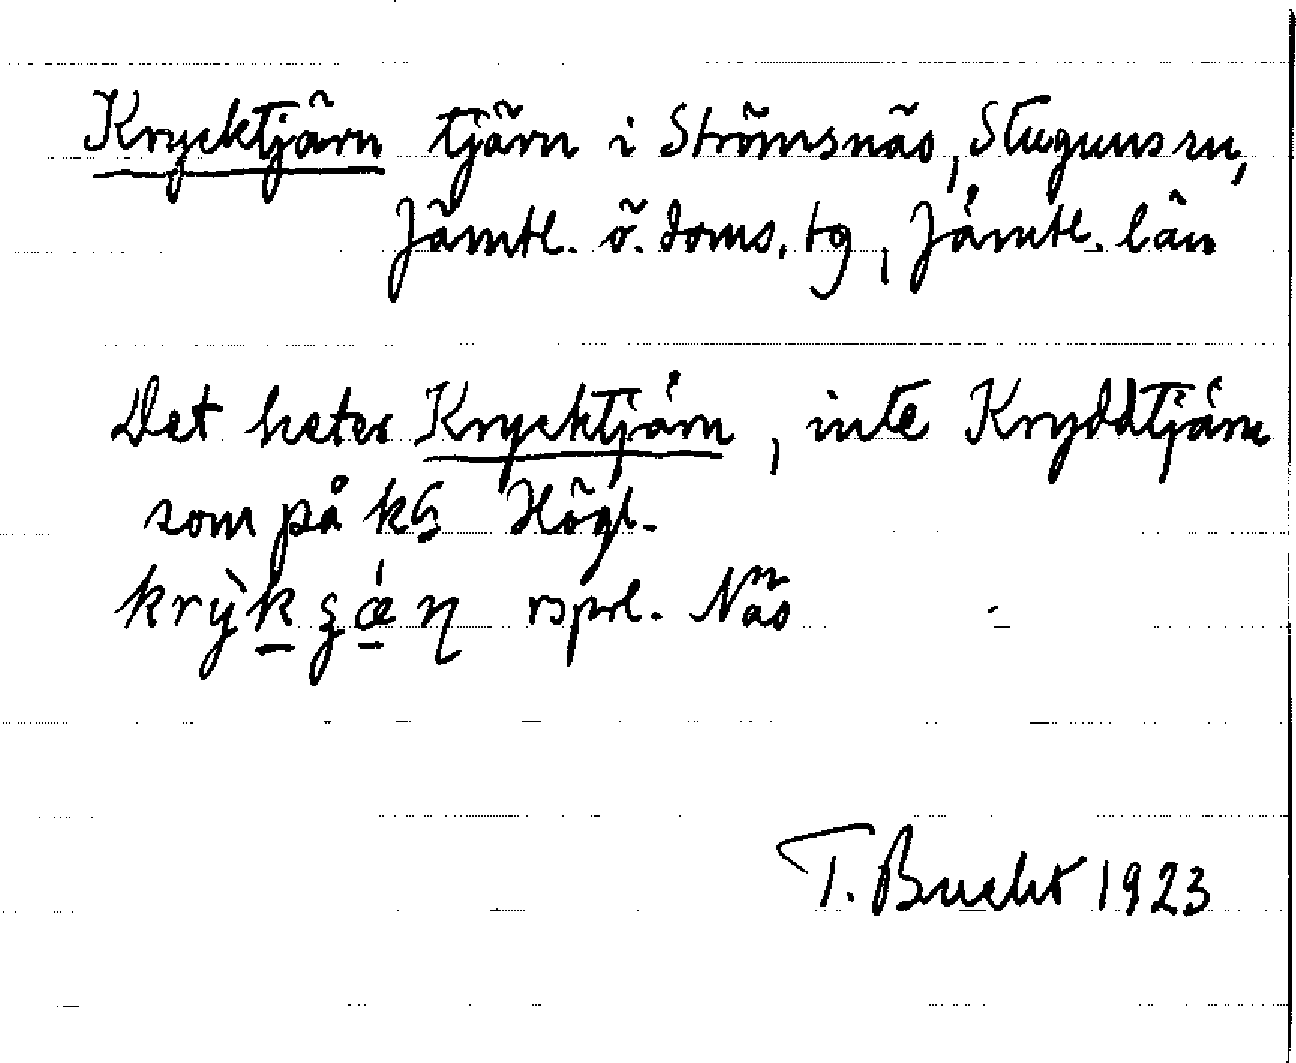 Krycktjärn tjärn i Strömsnäs, Stuguns sn,
Jämtl. ö. doms. tg, Jämtl. län
Det heter Krycktjärn, inte Kryddtjärn
som på kG Högl.
rspr. Näs
T. Bucht 1923